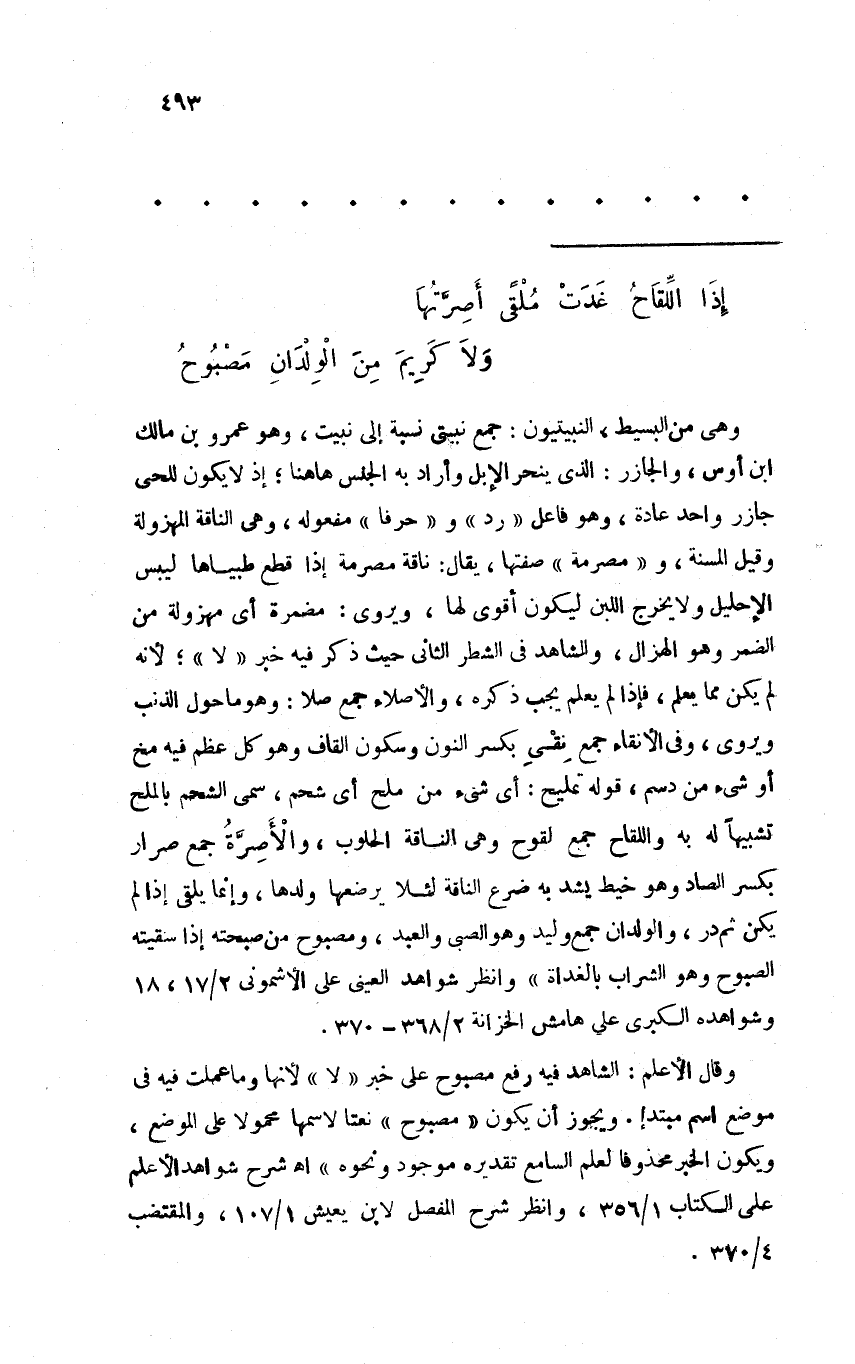 ٤٩٣
. . . . . . . . . . . . .
إِذَا اللِّقَاحُ غَدَتْ مُلْقًى أَصِرَّتُهَا
وَلاَ كَرِيمَ مِنَ الْوِلْدَانِ مَصْبُوحُ
وهى من البسيط ، النبيتيون : جمع نبيتى نسبة إلى نبيت ، وهو عمرو بن مالك
ابن أوس ، والجازر : الذى ينحر الإبل وأراد به الجنس هاهنا ؛ إذ لا يكون للحى
جازر واحد عادة ، وهو فاعل « رد » و « حرفا » مفعوله ، وهى الناقة المهزولة
وقيل المسنة ، و « مصرمة » صفتها ، يقال: ناقة مصرمة إذا قطع طبيــاها ليبس
الإحليل ولا يخرج اللبن ليكون أقوى لها ، ويروى : مضمرة أى مهزولة من
الضمر وهو الهزال ، والشاهد فى الشطر الثانى حيث ذكر فيه خبر « لا » ؛ لأنه
لم يكن مما يعلم ، فإذا لم يعلم يجب ذكره ، والأصلاء جمع صلا : وهو ما حول الذنب
ويروى ، وفى الأنقاء جمع نِقْىٍ بكسر النون وسكون القاف وهو كل عظم فيه مخ
أو شىء من دسم ، قوله تمليح : أى شىء من ملح أى شحم ، سمى الشحم بالملح
تشبيهاً له به واللقاح جمع لقوح وهى النــاقة الحلوب ، والْأَصِرَّةُ جمع صرار
بكسر الصاد وهو خيط يشد به ضرع الناقة لئــلا يرضعها ولدها ، وإنما يلقى إذا لم
يكن ثم در ، والولدان جمع وليد وهو الصبى والعبد ، ومصبوح من صبحته إذا سقيته
الصبوح وهو الشراب بالغداة » وانظر شواهد العينى على الأشمونى ١٧/٢ ، ١٨
وشواهده الـكبرى على هامش الخزانة ٣٦٨/٢ – ٣٧٠ .
وقال الأعلم : الشاهد فيه رفع مصبوح على خبر « لا » لأنها وما عملت فيه فى
موضع اسم مبتدإ . ويجوز أن يكون « مصبوح » نعتا لاسمها محمولا على الموضع ،
ويكون الخبر محذوفا لعلم السامع تقديره موجود ونحوه » اهـ شرح شواهد الأعلم
على الـكتاب ٣٥٦/١ ، وانظر شرح المفصل لابن يعيش ١٠٧/١ ، والمقتضب
٣٧٠/٤ .